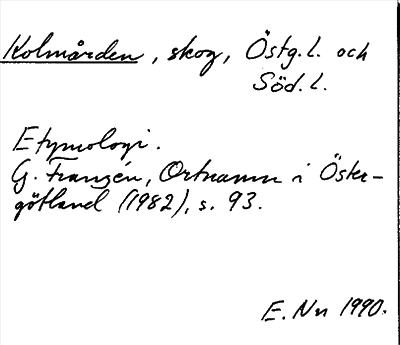 Kolmården, skog, Östg.l. och
Söd.l.
Etymologi.
G. Franzén, Ortnamn i Öster-
götland (1982), s. 93.
E. Nn 1990.